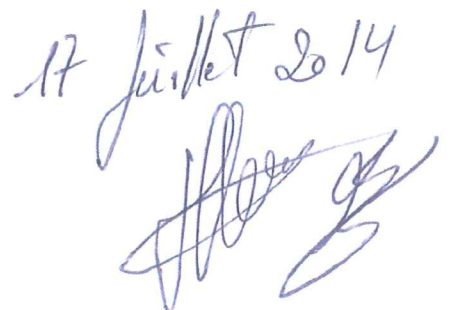 17 Juillet 2014